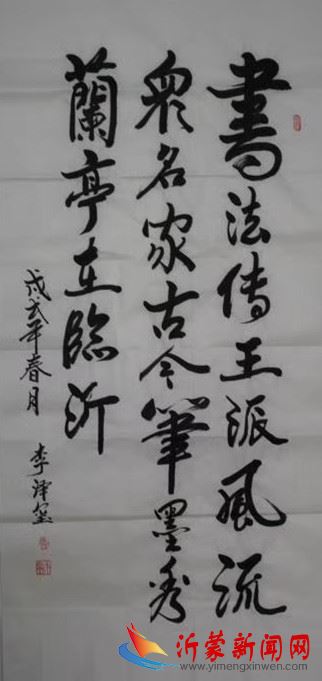 書法傳王派風流
眾名家古今筆墨秀
蘭亭在臨沂
戊戌年春月
李泽玺
沂蒙新闻网
www.yimengxinwen.com